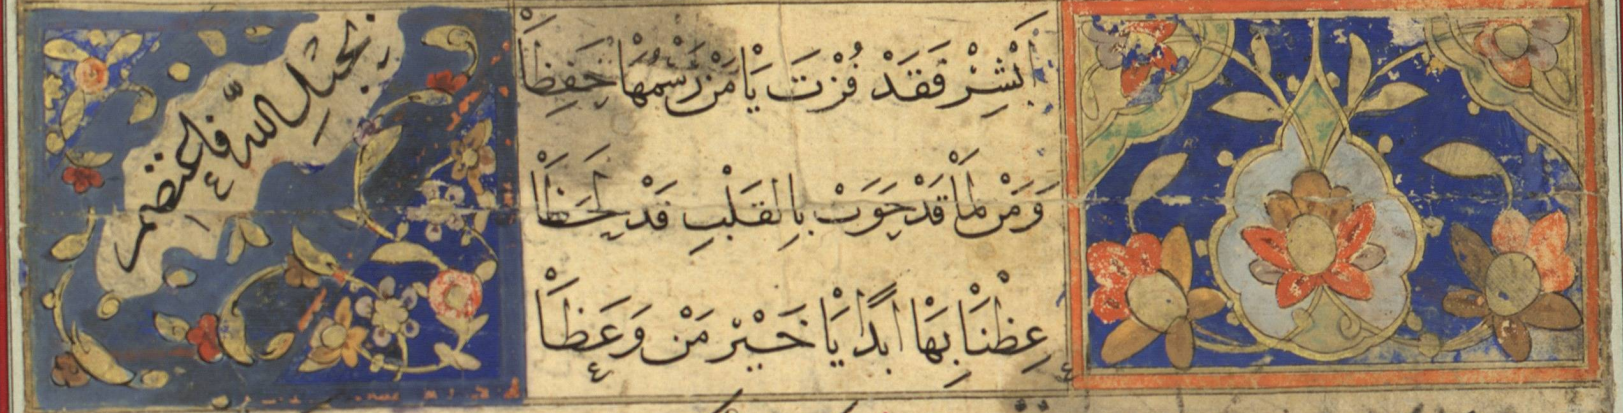 أَبْشِرْ فَقَدْ فُزْتَ يَا مَنْ رَسْمُهَا حَفِظَا
وَمَنْ لَمَا قَدْ حَوَتْ بِالْقَلْبِ قَدْ لَحَظَا
عِظْنَا بِهَا أَبَدًا يَا خَيْرَ مَنْ وَعَظَا
بحبل الله فاعتصم